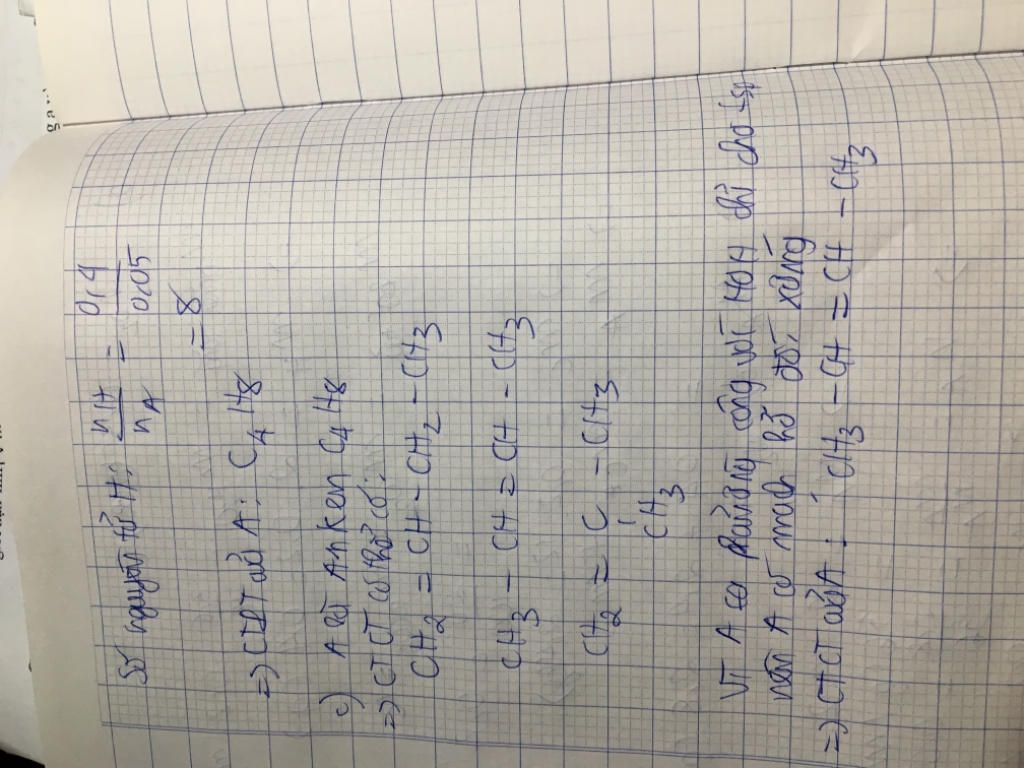 Số nguyên tử H: nH / nA = 0,4 / 0,05
= 8
=) CTPT của A: C4H8
c) A là Anken C4H8
=) CTCT có thể có:
CH2 = CH - CH2 - CH3
CH3 - CH = CH - CH3
CH2 = C - CH3
CH3
Vì A có phản ứng cộng với HOH chỉ cho 1 sp
nên A có mạch hở đối xứng
=) CTCT của A: CH3 - CH = CH - CH3